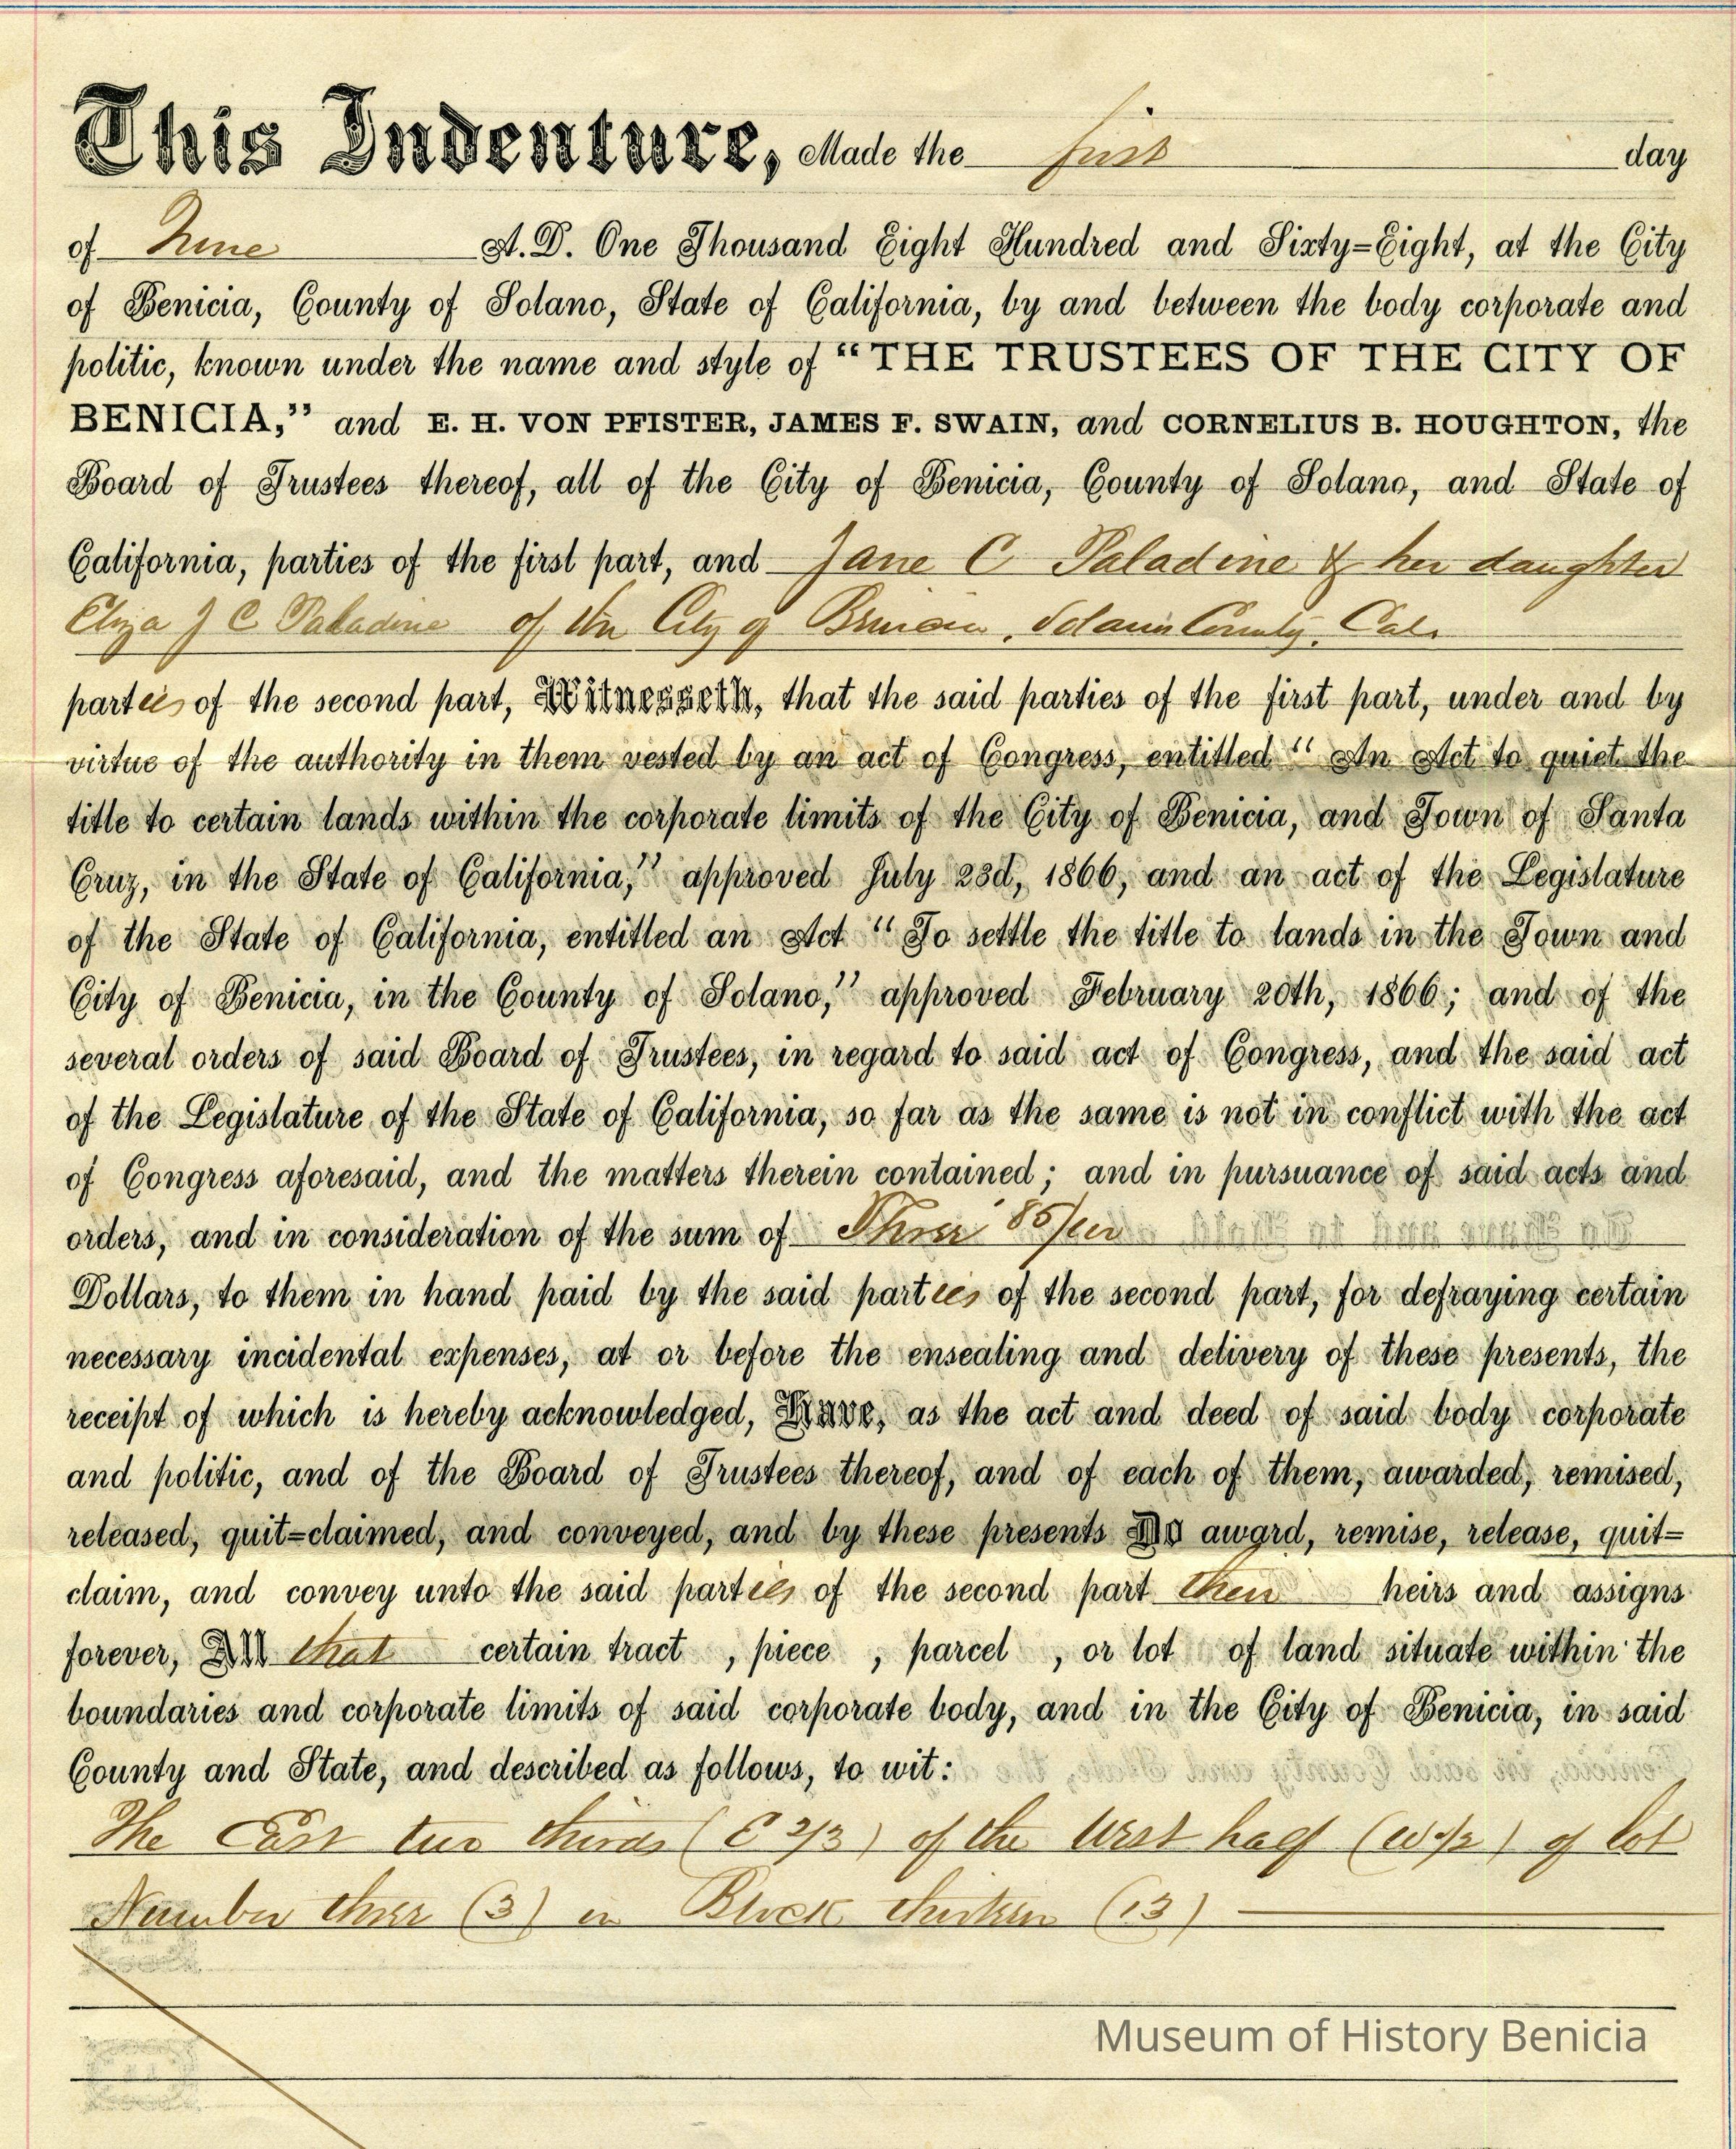 This Indenture, Made the first day
of June A.D. One Thousand Eight Hundred and Sixty=Eight, at the City
of Benicia, County of Solano, State of California, by and between the body corporate and
politic, known under the name and style of "THE TRUSTEES OF THE CITY OF
BENICIA," and E. H. VON PFISTER, JAMES F. SWAIN, and CORNELIUS B. HOUGHTON, the
Board of Trustees thereof, all of the City of Benicia, County of Solano, and State of
California, parties of the first part, and Jane C Paladine & her daughter
Eliza J C Paladine of the City of Benicia, Solano County, Cal.
parties of the second part, Witnesseth, that the said parties of the first part, under and by
virtue of the authority in them vested by an act of Congress, entitled "An Act to quiet the
title to certain lands within the corporate limits of the City of Benicia, and Town of Santa
Cruz, in the State of California," approved July 23d, 1866, and an act of the Legislature
of the State of California, entitled an Act "To settle the title to lands in the Town and
City of Benicia, in the County of Solano," approved February 20th, 1866; and of the
several orders of said Board of Trustees, in regard to said act of Congress, and the said act
of the Legislature of the State of California, so far as the same is not in conflict with the act
of Congress aforesaid, and the matters therein contained; and in pursuance of said acts and
orders, and in consideration of the sum of Three 85/
Dollars, to them in hand paid by the said parties of the second part, for defraying certain
necessary incidental expenses, at or before the ensealing and delivery of these presents, the
receipt of which is hereby acknowledged, Have, as the act and deed of said body corporate
and politic, and of the Board of Trustees thereof, and of each of them, awarded, remised,
released, quit=claimed, and conveyed, and by these presents Do award, remise, release, quit=
claim, and convey unto the said parties of the second part their heirs and assigns
forever, All that certain tract , piece , parcel , or lot of land situate within the
boundaries and corporate limits of said corporate body, and in the City of Benicia, in said
County and State, and described as follows, to wit:
The East two thirds (E 2/3) of the West half (W 1/2) of lot
Number three (3) in Block thirteen (13)
Museum of History Benicia